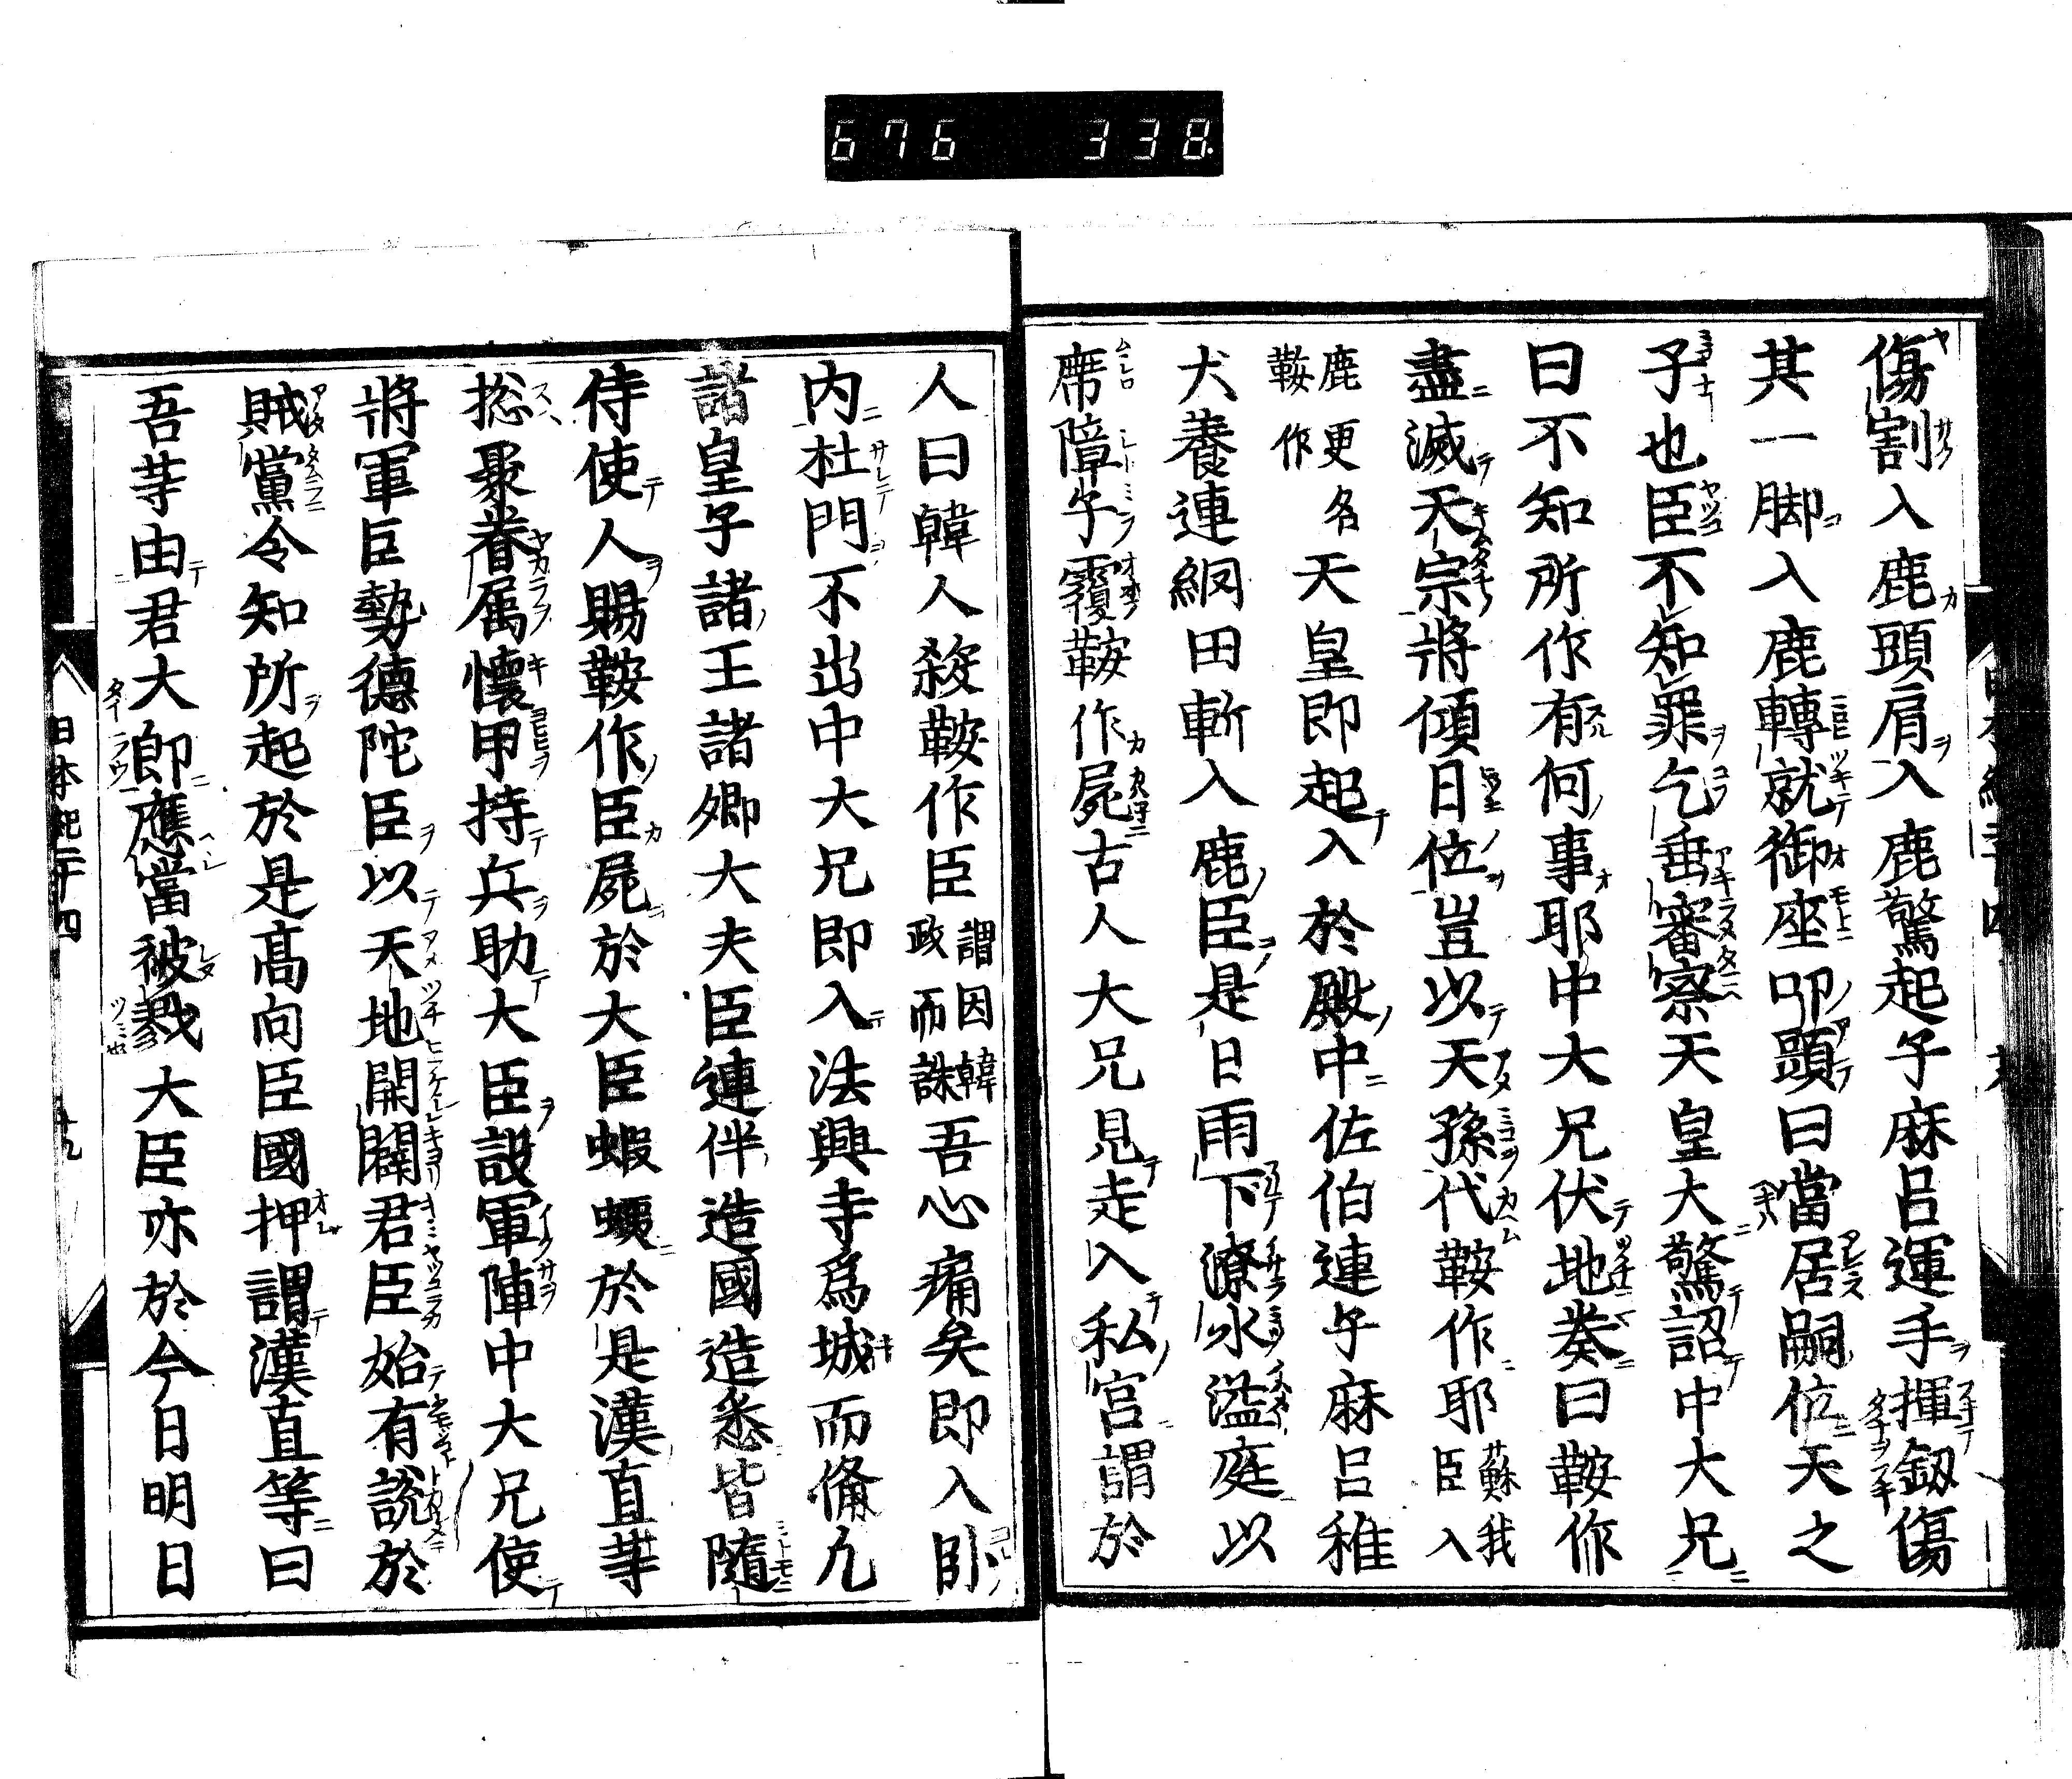 676 338
傷割入鹿頭肩入鹿驚起子麻呂運手揮釼傷
其一脚入鹿轉就御座叩頭曰當居嗣位天之
子也臣不知罪乞垂審察天皇大驚詔中大兄
曰不知所作有何事耶中大兄伏地奏曰鞍作
盡滅天宗將傾日位豈以天孫代鞍作耶蘇我臣入
鹿更名鞍作天皇即起入於殿中佐伯連子麻呂稚
犬養連網田斬入鹿臣是日雨下潦水溢庭以
席障子覆鞍作屍古人大兄見走入私宮謂於
人曰韓人殺鞍作臣謂因韓政而誅吾心痛矣即入卧
内杜門不出中大兄即入法興寺爲城而備凡
諸皇子諸王諸卿大夫臣連伴造國造悉皆隨
侍使人賜鞍作臣屍於大臣蝦蛦於是漢直等
捴聚眷属懷甲持兵助大臣設軍陣中大兄使
將軍巨勢德陀臣以天地開闢君臣始有說於
賊黨令知所起於是髙向臣國押謂漢直等曰
吾等由君大郎應當被戮大臣亦於今日明日
日本紀二十四 十九